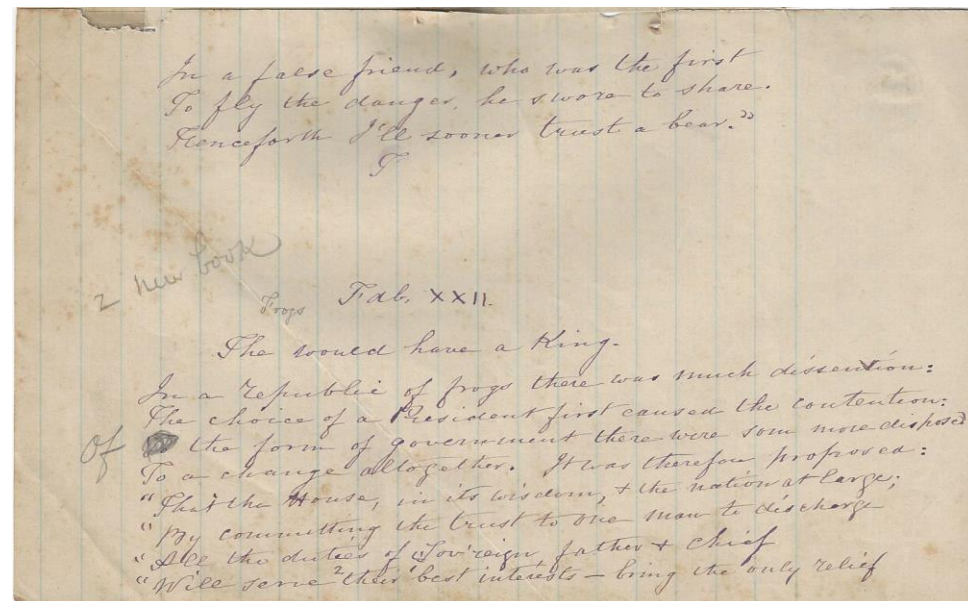 In a false friend, who was the first
To fly the danger, he swore to share.
Henceforth I'll sooner trust a bear."
T
2 new book
Frogs Fab. XXII.
The would have a King.
In a republic of frogs there was much dissention:
The choice of a President first caused the contention:
Of the form of government there were som more disposed
To a change altogether. It was therefore proposed:
"That the House, in its wisdom, & the nation at large;
"By committing the trust to one man to discharge
"All the duties of Sov'reign, father & chief
"Will serve 2 their best interests – bring the only relief